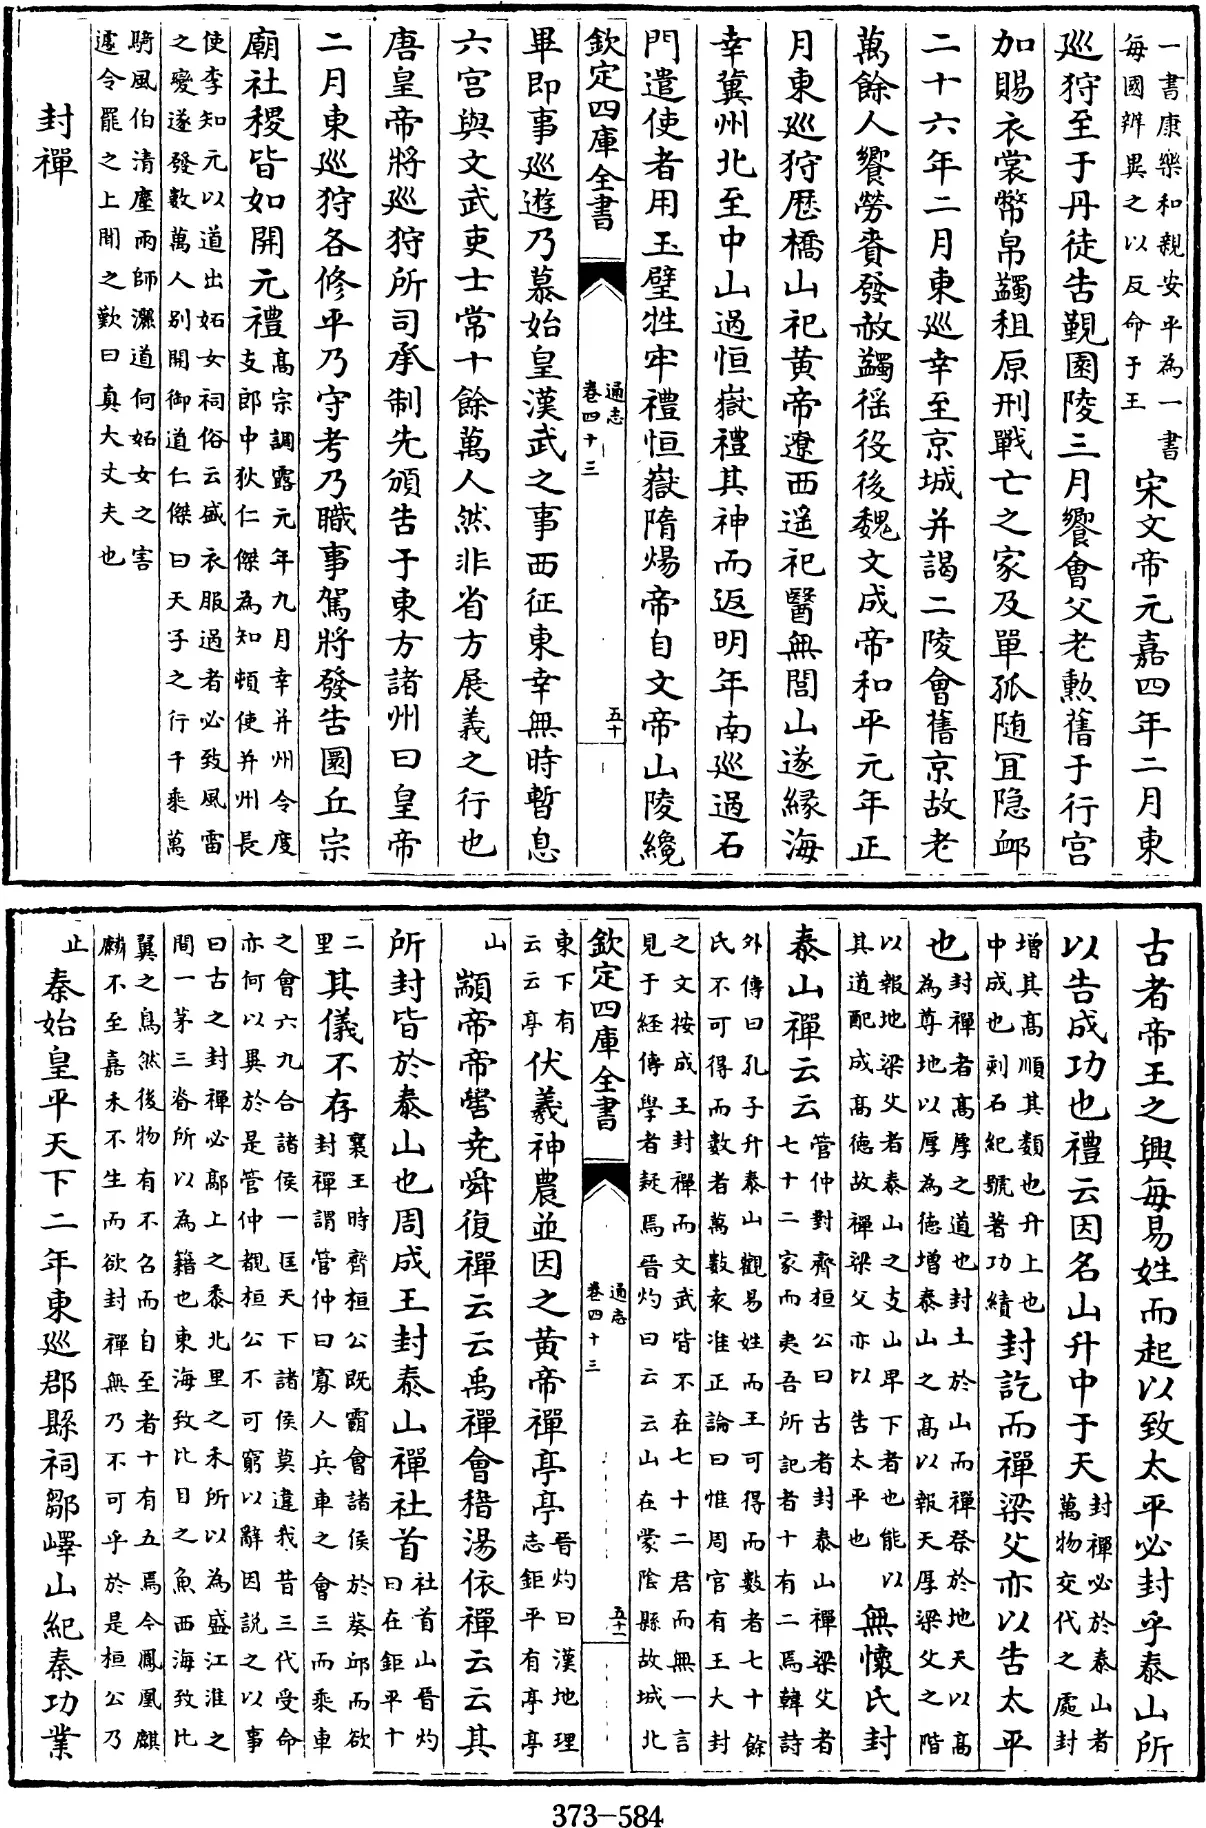 一書康樂和親安平為一書
每國辨異之以反命于王
宋文帝元嘉四年二月東
巡狩至于丹徒告覲園陵三月饗會父老勲舊于行宫
加賜衣裳幣帛蠲租原刑戰亡之家及單孤随宜隐䘏
二十六年二月東巡幸至京城并謁二陵會舊京故老
萬餘人饗勞賚發赦蠲徭役後魏文成帝和平元年正
月東巡狩歴橋山祀黄帝遼西遥祀醫無閭山遂縁海
幸冀州北至中山過恒嶽禮其神而返明年南巡過石
門遣使者用玉璧牲牢禮恒嶽隋煬帝自文帝山陵纔
欽定四庫全書
通志
卷四十三
五十
畢即事巡遊乃慕始皇漢武之事西征東幸無時暫息
六宫與文武吏士常十餘萬人然非省方展義之行也
唐皇帝將巡狩所司承制先頒告于東方諸州曰皇帝
二月東巡狩各修平乃守考乃職事駕將發告圜丘宗
廟社稷皆如開元禮
高宗調露元年九月幸并州令度
支郎中狄仁傑為知頓使并州長
使李知元以道出妬女祠俗云盛衣服過者必致風雷
之變遂發數萬人别開御道仁傑曰天子之行千乘萬
騎風伯清塵雨師灑道何妬女之害
遽令罷之上聞之歎曰真大丈夫也
封禪
古者帝王之興每易姓而起以致太平必封乎泰山所
以告成功也禮云因名山升中于天
封禪必於泰山者
萬物交代之處封
增其高順其類也升上也
中成也刻石紀號著功績
封訖而禪梁父亦以告太平
也
封禪者高厚之道也封土於山而禪祭於地天以高
為尊地以厚為徳增泰山之高以報天厚梁父之階
以報地梁父者泰山之支山卑下者也能以
其道配成高徳故禪梁父亦以告太平也
無懷氏封
泰山禪云云
管仲對齊桓公曰古者封泰山禪梁父者
七十二家而夷吾所記者十有二焉韓詩
外傳曰孔子升泰山觀易姓而王可得而數者七十餘
氏不可得而數者萬數袁准正論曰惟周官有王大封
之文按成王封禪而文武皆不在七十二君而無一言
見于經傳學者疑焉晉灼曰云云山在蒙陰縣故城北
欽定四庫全書
通志
卷四十三
五十一
東下有
云云亭
伏羲神農並因之黄帝禪亭亭
晉灼曰漢地理
志鉅平有亭亭
山
顓帝帝嚳尭舜復禪云云禹禪會稽湯依禪云云其
所封皆於泰山也周成王封泰山禪社首
社首山晉灼
曰在鉅平十
二
里
其儀不存
襄王時齊桓公既霸會諸侯於葵邱而欲
封禪謂管仲曰寡人兵車之會三而乘車
之會六九合諸侯一匡天下諸侯莫違我昔三代受命
亦何以異於是管仲覩桓公不可窮以辭因説之以事
曰古之封禪必鄗上之黍北里之禾所以為盛江淮之
間一茅三脊所以為籍也東海致比目之魚西海致比
翼之鳥然後物有不召而自至者十有五焉今鳳凰麒
麟不至嘉禾不生而欲封禪無乃不可乎於是桓公乃
止
秦始皇平天下二年東巡郡縣祠鄒嶧山紀秦功業
373-584